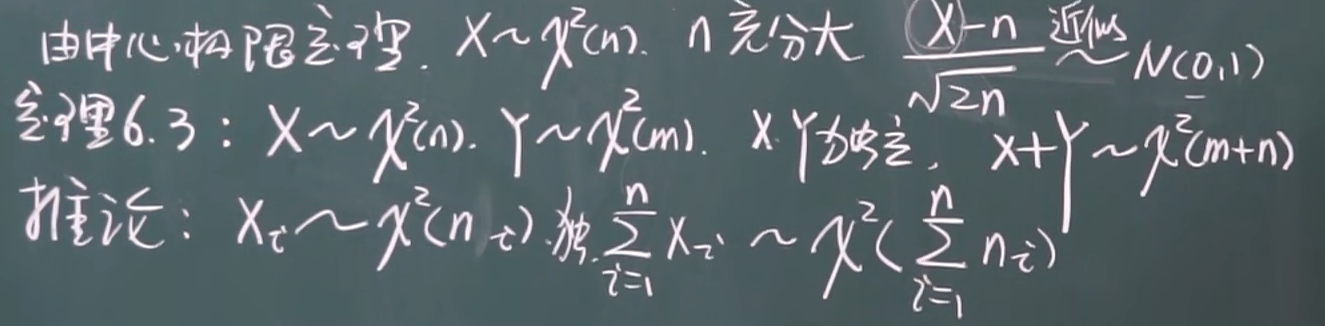 由中心极限定理. X~χ²(n). n充分大 (X-n)/√2n 近似~ N(0,1)
定理6.3: X~χ²(n). Y~χ²(m). X.Y独立, X+Y~χ²(m+n)
推论: Xᵢ~χ²(nᵢ).独. ∑ᵢ₌₁ⁿ Xᵢ ~ χ²(∑ᵢ₌₁ⁿ nᵢ)